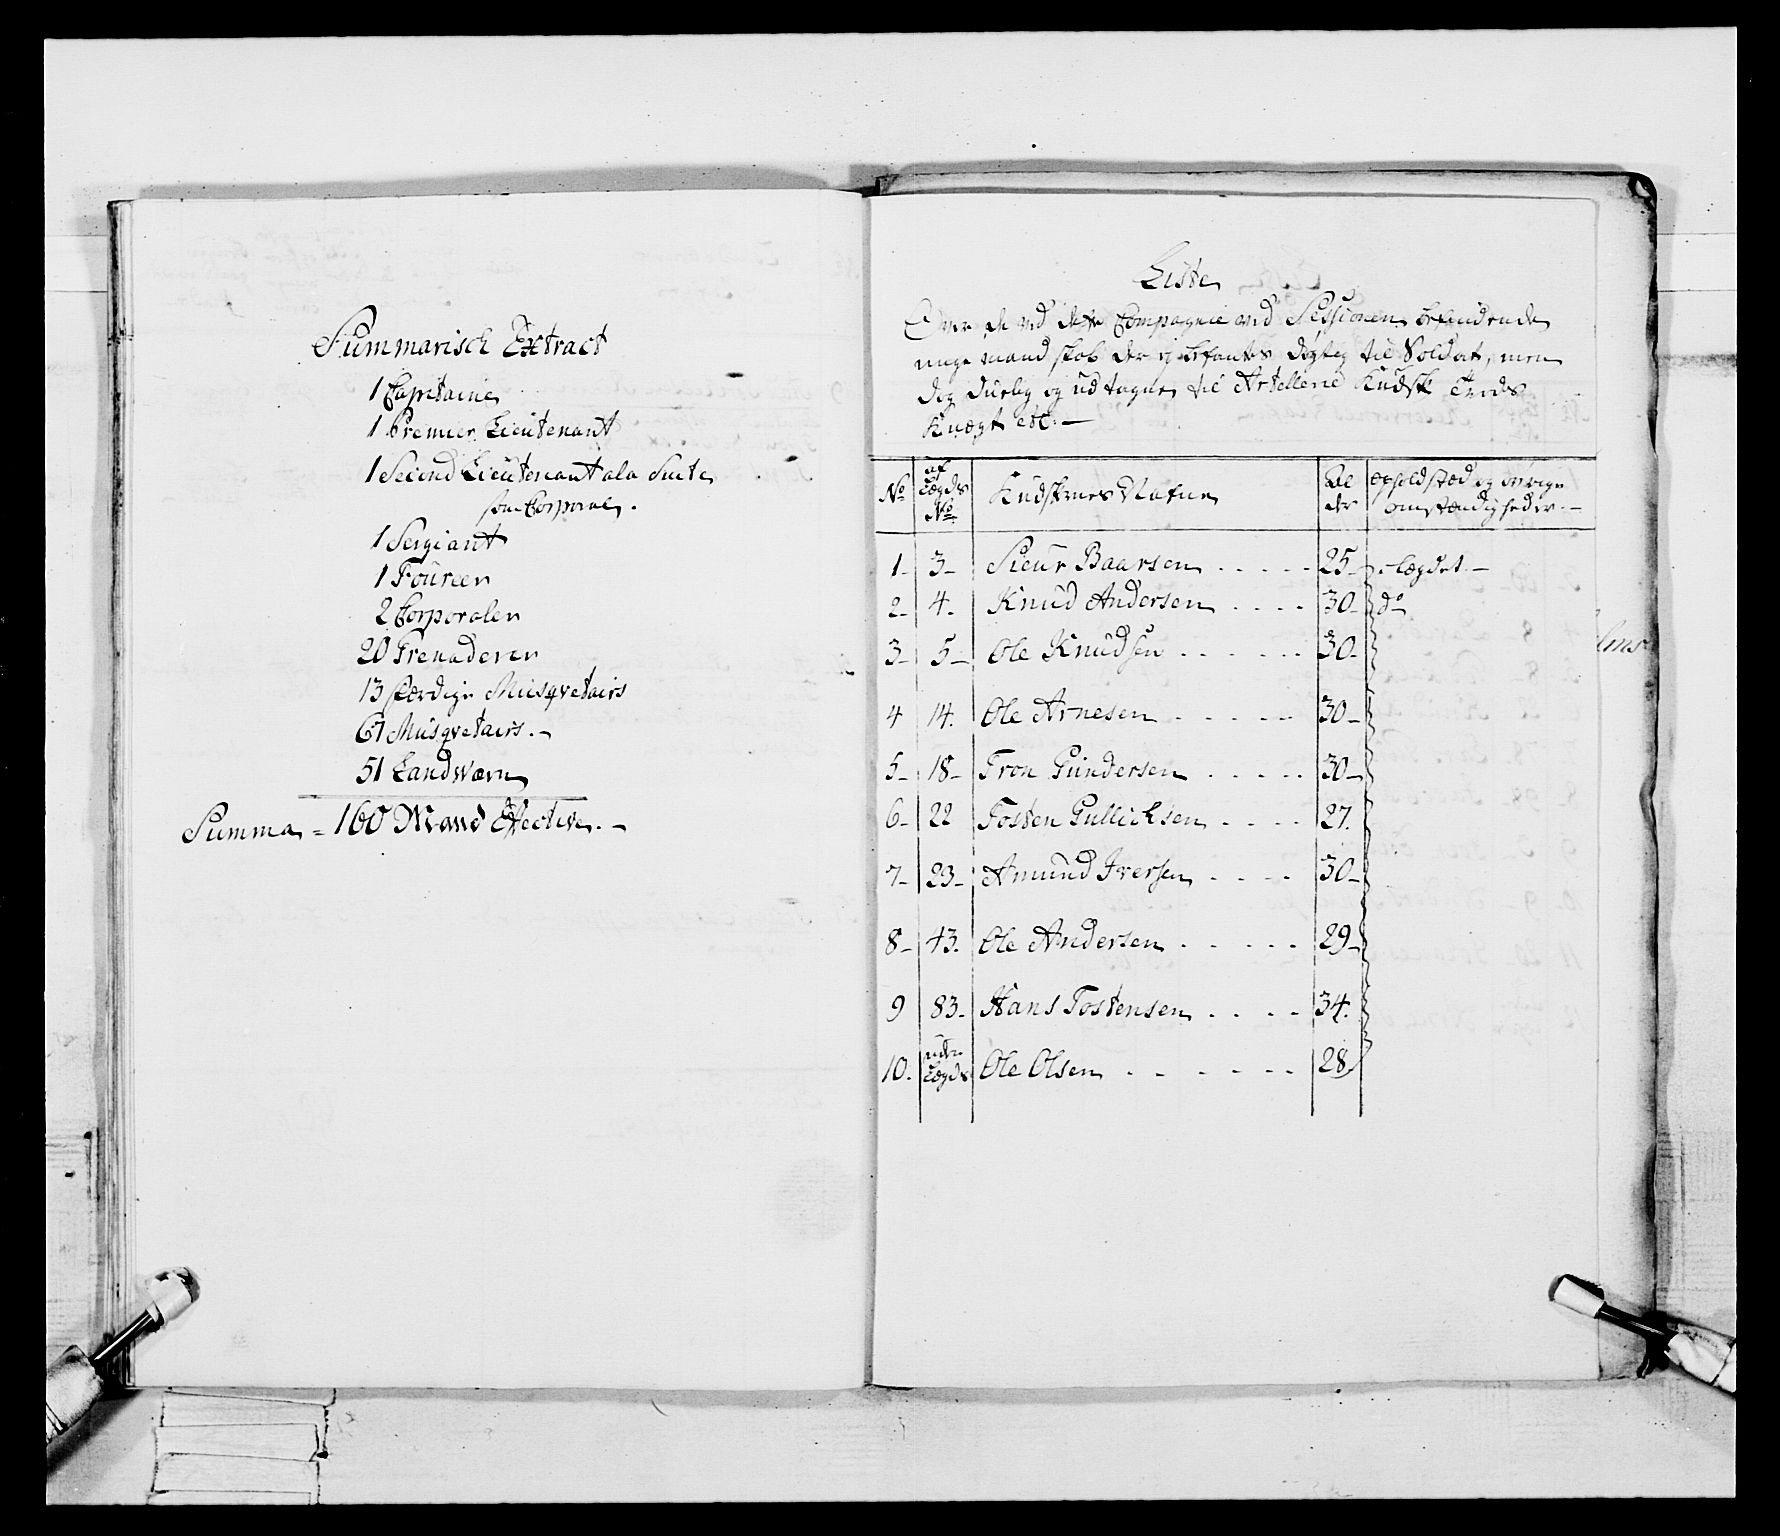 Summarisch Extract
1 Capitaine
1 Premier Lieutenant
1 Secind Lieutenant ala Suite
som Corporal.
1 Sergiant
1 Foureer
2 Corporaler
20 Grenaderer
13 færdige Musqvetairs
67 Musqvetairs.
51 Landværn
Summa = 160 Mand Effective.
Liste
Over de ved dette Compagnie ved Sessionen befindende
unge mandskab der ej befantes dögtig til Soldat, men
dog duelig og udtagne til Artellerie Kudsk Treds
Knægt etc.
No | af Lægds No | Kudskenes Nafne | Al der | Opholdsted og övrige omstændigheder.
1 3 Sieur Baarsen 25 i Lægdet
2 4. Knud Andersen 30 do
3 5 Ole Knudsen 30
4 14. Ole Arnesen 30
5 18 Tron Gundersen 30
6 22 Tosten Gullicksen 27.
7 23 Amund Iversen 30
8 43. Ole Andersen 29
9 83 Hans Tostensen 34.
10. uden Lægds Ole Olsen 28